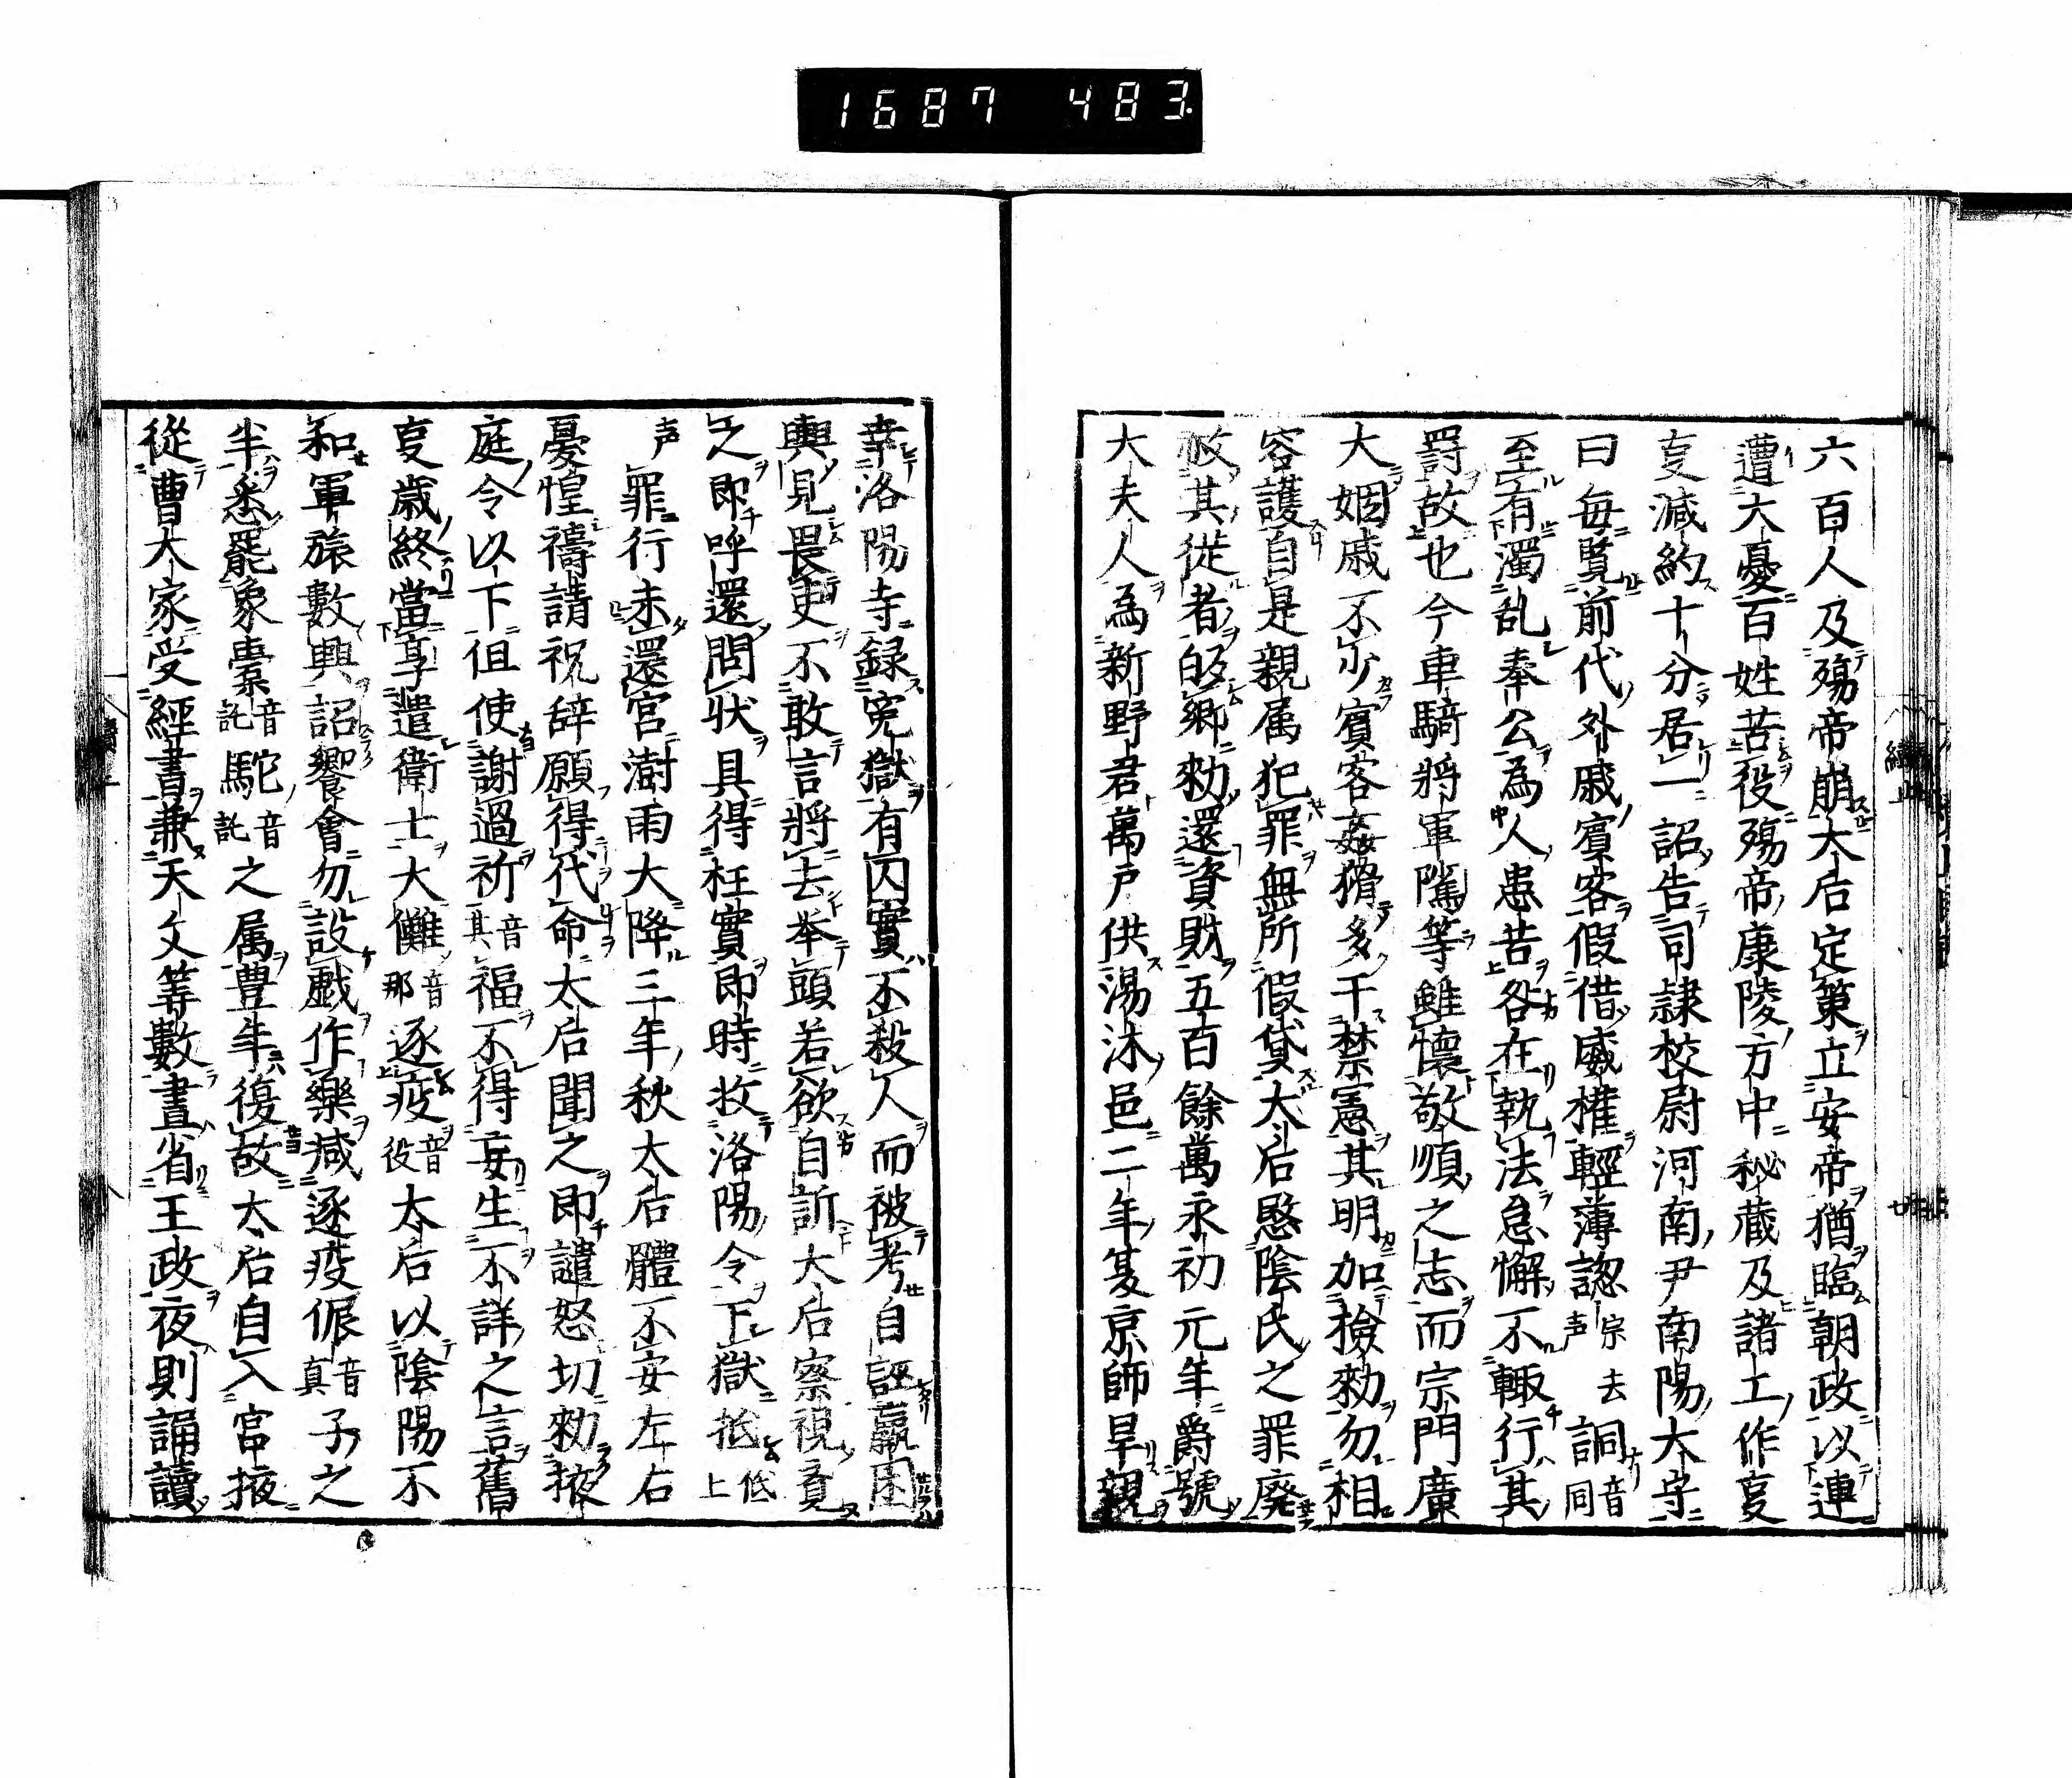 1687 483
六百人及殤帝崩太后定策立安帝猶臨朝政以連
遭大憂百姓苦役殤帝康陵方中秘蔵及諸工作㕝
㕝減約十分居一詔告司隷校尉河南尹南陽太守
曰每覧前代外戚賓客假借威權輕薄諰宗去声詷音同
至有濁乱奉公為人患苦各在執法怠懈不輙行其
罸故也今車騎將軍隲等雖懐敬順之志而宗門廣
大姻戚不少賓客姦猾多干禁憲其明加檢勑勿相
容護自是親属犯罪無所假貸太后愍陰氏之罪廢
赦其徙者皈鄉勑還資財五百餘萬永初元年爵號
大夫人為新野君萬戸供湯沐邑二年夏京師旱親
幸洛陽寺録寃獄有囚實不殺人而被考自誣羸困
輿見畏吏不敢言將去举頭若欲自訴太后察視覔
之即呼還問状具得枉實即時收洛陽令下獄抵低上
声罪行未還宮澍雨大降三年秋太后體不安左右
憂惶禱請祝辞願得代命太后聞之即譴怒切勑掖
庭令以下但使謝過祈音其福不得妄生不詳之言舊
㕝歳終當享遣衛士大儺音那逐疫音役太后以陰陽不
和軍旅數興詔饗會勿設戯作樂减逐疫侲音真子之
半悉罷象橐音託駝音託之属豊年復故太后自入宮掖
從曹大家受經書兼天文筭數晝省王政夜則誦讀